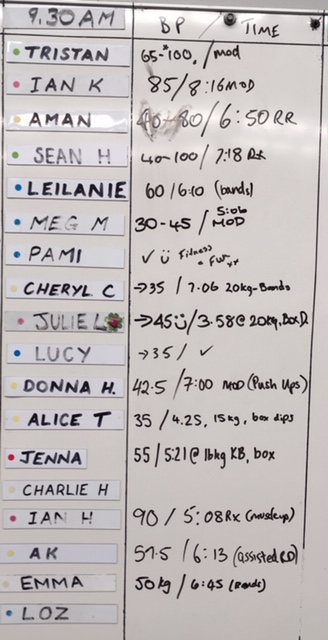 9.30AM BP / TIME
TRISTAN 65-*100, /mod
IAN K 85/8:16MOD
AMAN 40-80/6:50RR
SEAN H 40-100 / 7:18 Rx
LEILANIE 60/6:10 (bands)
MEG M 30-45 / 5:06 MOD
PAMI ✓ ☺ Fitness + Fun xx
CHERYL C →35 / 7.06 20kg-Bands
JULIE L →45☺/3.58@20kg,Box D
LUCY →35/ ✓
DONNA H. 42.5/7:00 MOD (Push Ups)
ALICE T 35 / 4.25, 15kg, box dips
JENNA 55/5:21@16kg KB, box
CHARLIE H
IAN H 90 / 5:08Rx (muscleup)
AK 57.5 / 6:13 (assisted RD)
EMMA 50kg / 6:45 (Bands)
LOZ